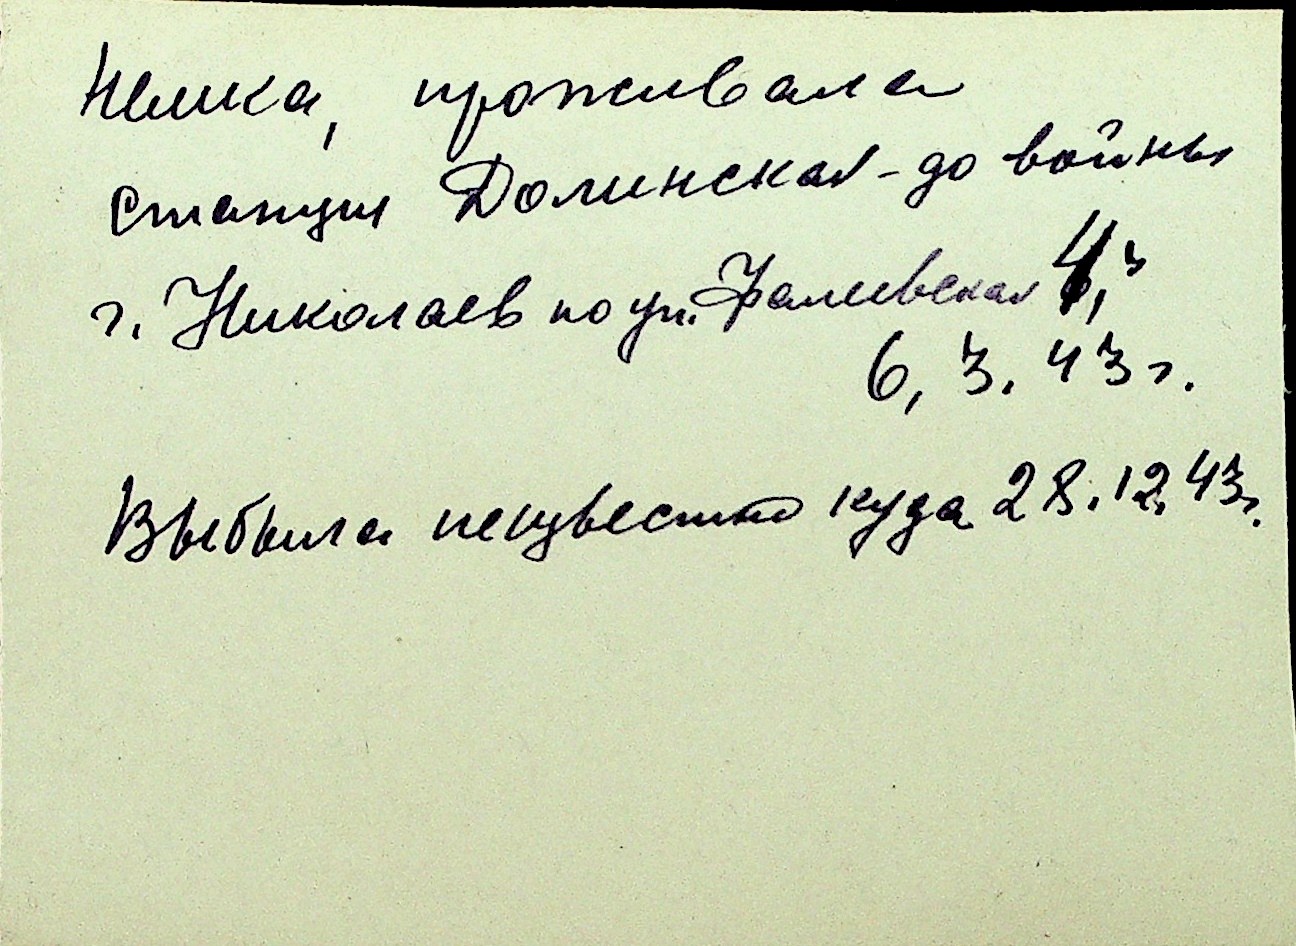 Немка, проживала
станция Долинская - до войны
г. Николаев по ул. Фалиевская 4,3
6, 3. 43 г.
Выбыла неизвестно куда 28.12.43г.